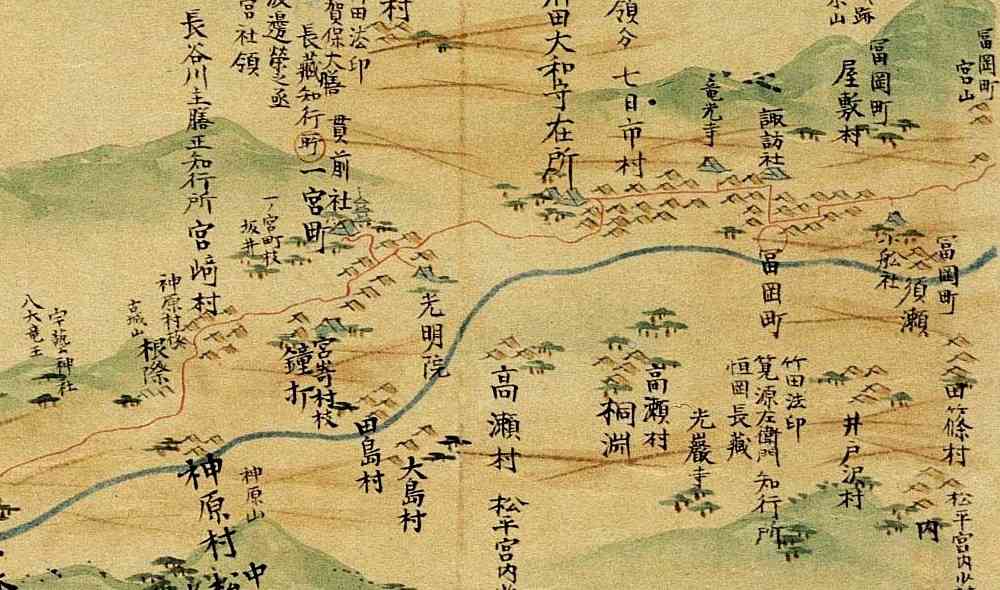 冨岡町
宮山
跡
冨岡町
屋敷村
諏訪社
竜光寺
領分 七日市村
田大和守在所
村
田法印
賀保大膳
長藏知行所
渡邊榮之丞
宮社領
長谷川主膳正知行所 宮﨑村
貫前社
一宮町
一ノ宮町枝
坂井
冨岡町
小舩社
冨岡町
須瀬
光明院
神原村枝
根際
古城山
八大竜王
宮寄村枝
鐘打
田島村
大島村
神原村
神原山
中
高瀬村
松平宮内少
高瀬村
桐淵
光巖寺
竹田法印
筧源左衛門
恒岡長藏
知行所
井戸沢村
田篠村
松平宮内少
内